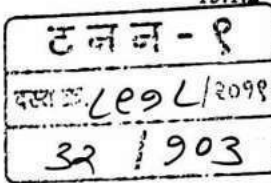 ट न न - १
दस्त क्र. ८९७८/२०१९
३२ / १०३